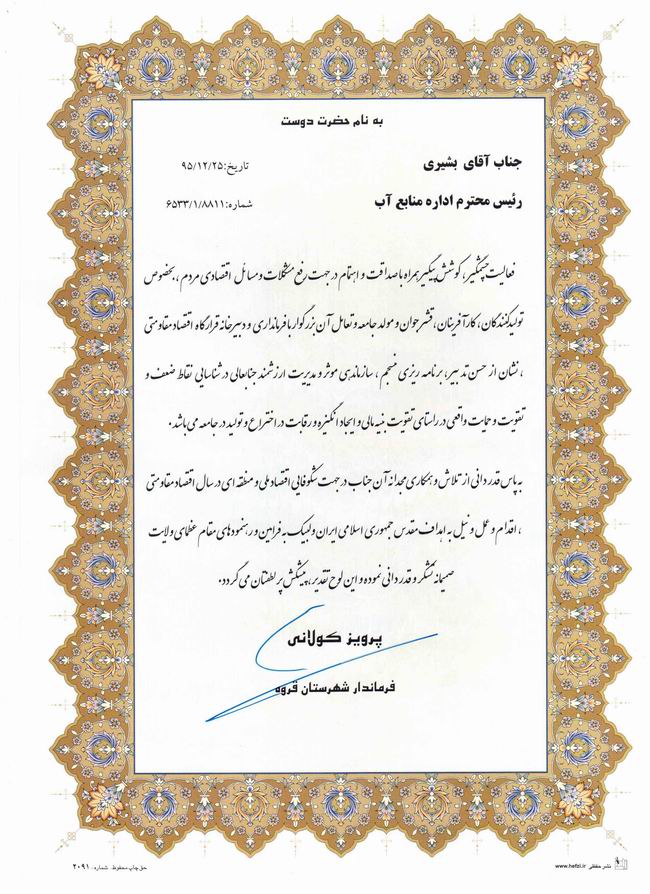 به نام حضرت دوست
جناب آقای بشیری
تاریخ:۹۵/۱۲/۲۵
رئیس محترم اداره منابع آب
شماره:۶۵۳۳/۱/۸۸۱۱
فعالیت چشمگیر، کوشش پیگیر همراه با صداقت و اهتمام در جهت رفع مشکلات و مسائل اقتصادی مردم ، بخصوص
تولیدکنندگان، کارآفرینان، قشر جوان و مولد جامعه و تعامل آن بزرگوار با فرمانداری و دبیرخانه قرارگاه اقتصاد مقاومتی
، نشان از حسن تدبیر، برنامه ریزی منسجم ، سازماندهی موثر و مدیریت ارزشمند جنابعالی در شناسایی نقاط ضعف و
تقویت و حمایت واقعی در راستای تقویت بنیه مالی و ایجاد انگیزه و رقابت در اختراع و تولید در جامعه می باشد.
به پاس قدردانی از تلاش و همکاری مجدانه آن جناب در جهت شکوفایی اقتصاد ملی و منطقه ای در سال اقتصاد مقاومتی
، اقدام و عمل و نیل به اهداف مقدس جمهوری اسلامی ایران و لبیک به فرامین و رهنمودهای مقام عظمای ولایت
صمیمانه تشکر و قدردانی نموده و این لوح تقدیر، پیشکش پر لطفتان می گردد.
پرویز کولانی
فرماندار شهرستان قروه
نشر حفظی www.hefzi.ir
حق چاپ محفوظ. شماره: ۲۰۹۱